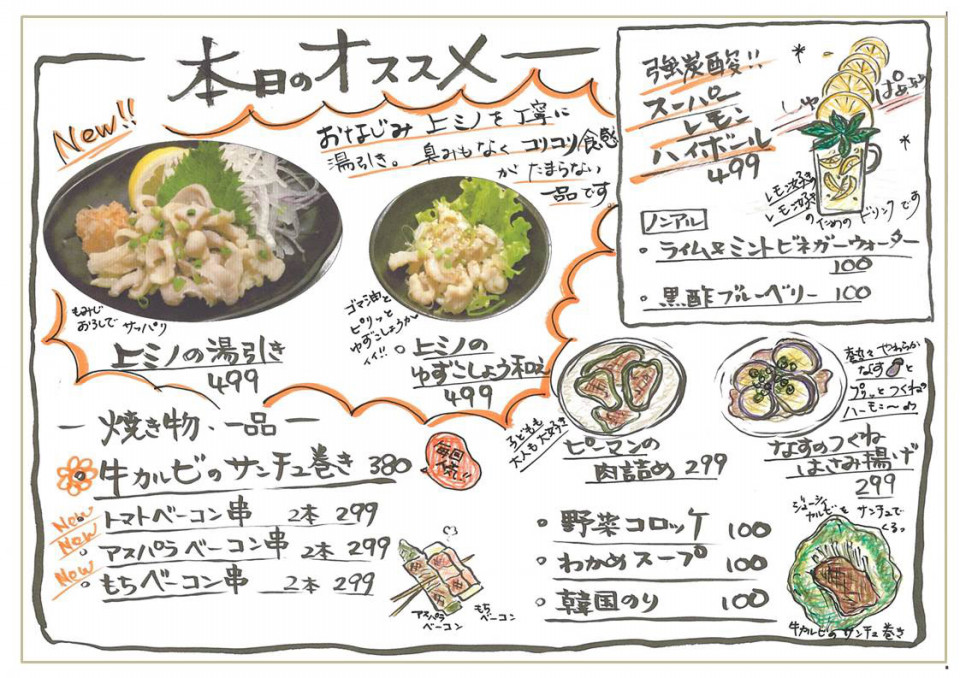 本日のオススメ
New!!
おなじみ 上ミノを丁寧に
湯引き。臭みもなく コリコリ食感
が たまらない
一品です
もみじ
おろしで サッパリ
上ミノの湯引き
499
ゴマ油と
ピリッと
ゆずこしょうが
イイ!!
上ミノの
ゆずこしょう和え
499
強炭酸!!
スーパー
レモン
ハイボール
499
しゅ ぱぁぁ
レモン好き
レモン好き
のための ドリンクです
ノンアル
・ライム&ミントビネガーウォーター
100
・黒酢ブルーベリー 100
ー 焼き物、一品 ー
牛カルビのサンチュ巻き 380
毎回
人気!!
New トマトベーコン串 2本 299
New アスパラベーコン串 2本 299
New もちベーコン串 2本 299
アスパラ
ベーコン
もち
ベーコン
子どもも
大人も大好き
ピーマンの
肉詰め 299
やわらか
なす と
プリッとつくね
ハーモニ〜
なすのつくね
はさみ揚げ
299
・野菜コロッケ 100
・わかめスープ 100
・韓国のり 100
ジューシィ
カルビと サンチュで
くるっ
牛カルビの サンチュ巻き